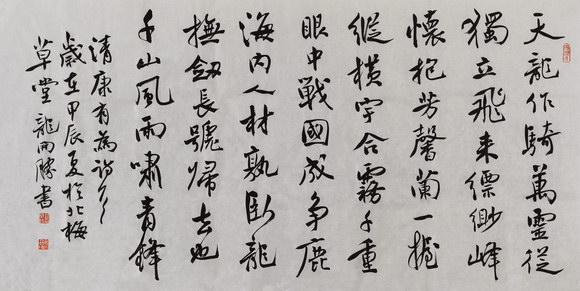 天龍作騎萬靈從
獨立飛来縹緲峰
懷抱芳馨蘭一握
縱橫宇合霧千重
眼中戰國成爭鹿
海内人材孰臥龍
撫劔長號歸去也
千山風雨嘯青鋒
清康有為詩
歲在甲辰夏於北梅
草堂 龍開勝書